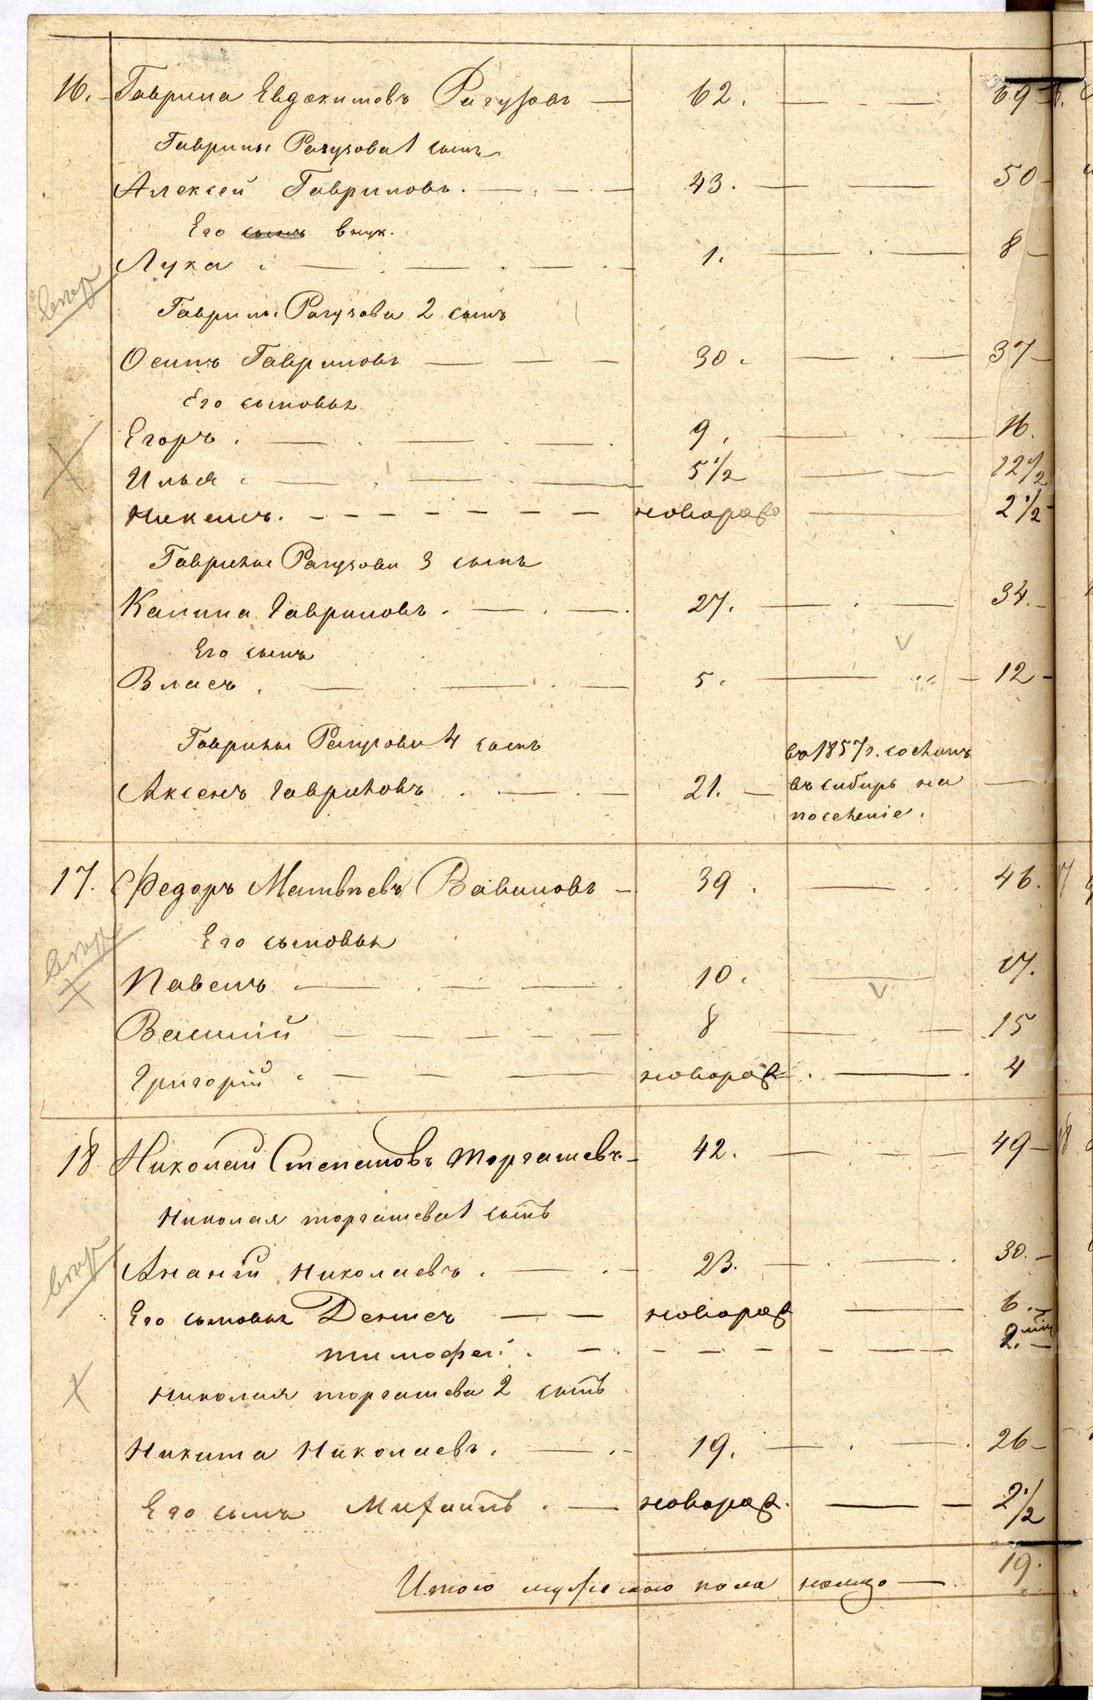 16. Гаврила Евдокимовъ Рагузовъ 62. 69
Гаврилы Рагузова 1 сынъ
Алексей Гавриловъ. 43. 50
Его сынъ внук.
Лука 1. 8
Гаврилы Рагузова 2 сынъ
Осипъ Гавриловъ 30. 37
Его сыновья
Егоръ. 9. 16.
Илья 5 1/2 12 1/2
новорож 2 1/2
Гаврилы Рагузова 3 сынъ
Калина Гавриловъ. 27. 34.
Его сынъ
Власъ. 5. 12
Гаврилы Рагузова 4 сынъ
въ 1857 г. сосланъ
Аксенъ Гавриловъ 21. въ сибирь на
поселеніе.
17. Федоръ Матвѣевъ Вавиловъ 39. 46.
Его сыновья
Павелъ 10. 17.
Василій 8 15
Григорій новорож 4
18 Николай Степановъ Торгашевъ 42. 49
Николая торгашева 1 сынъ
Ананій Николаевъ. 23. 30.
Его сыновья Денисъ новорож 6.
тимофей. 2.
Николая торгашева 2 сынъ
Никита Николаевъ. 19. 26
Его сынъ Михаилъ. новорож. 2 1/2
Итого мужескаго пола налицо 19.